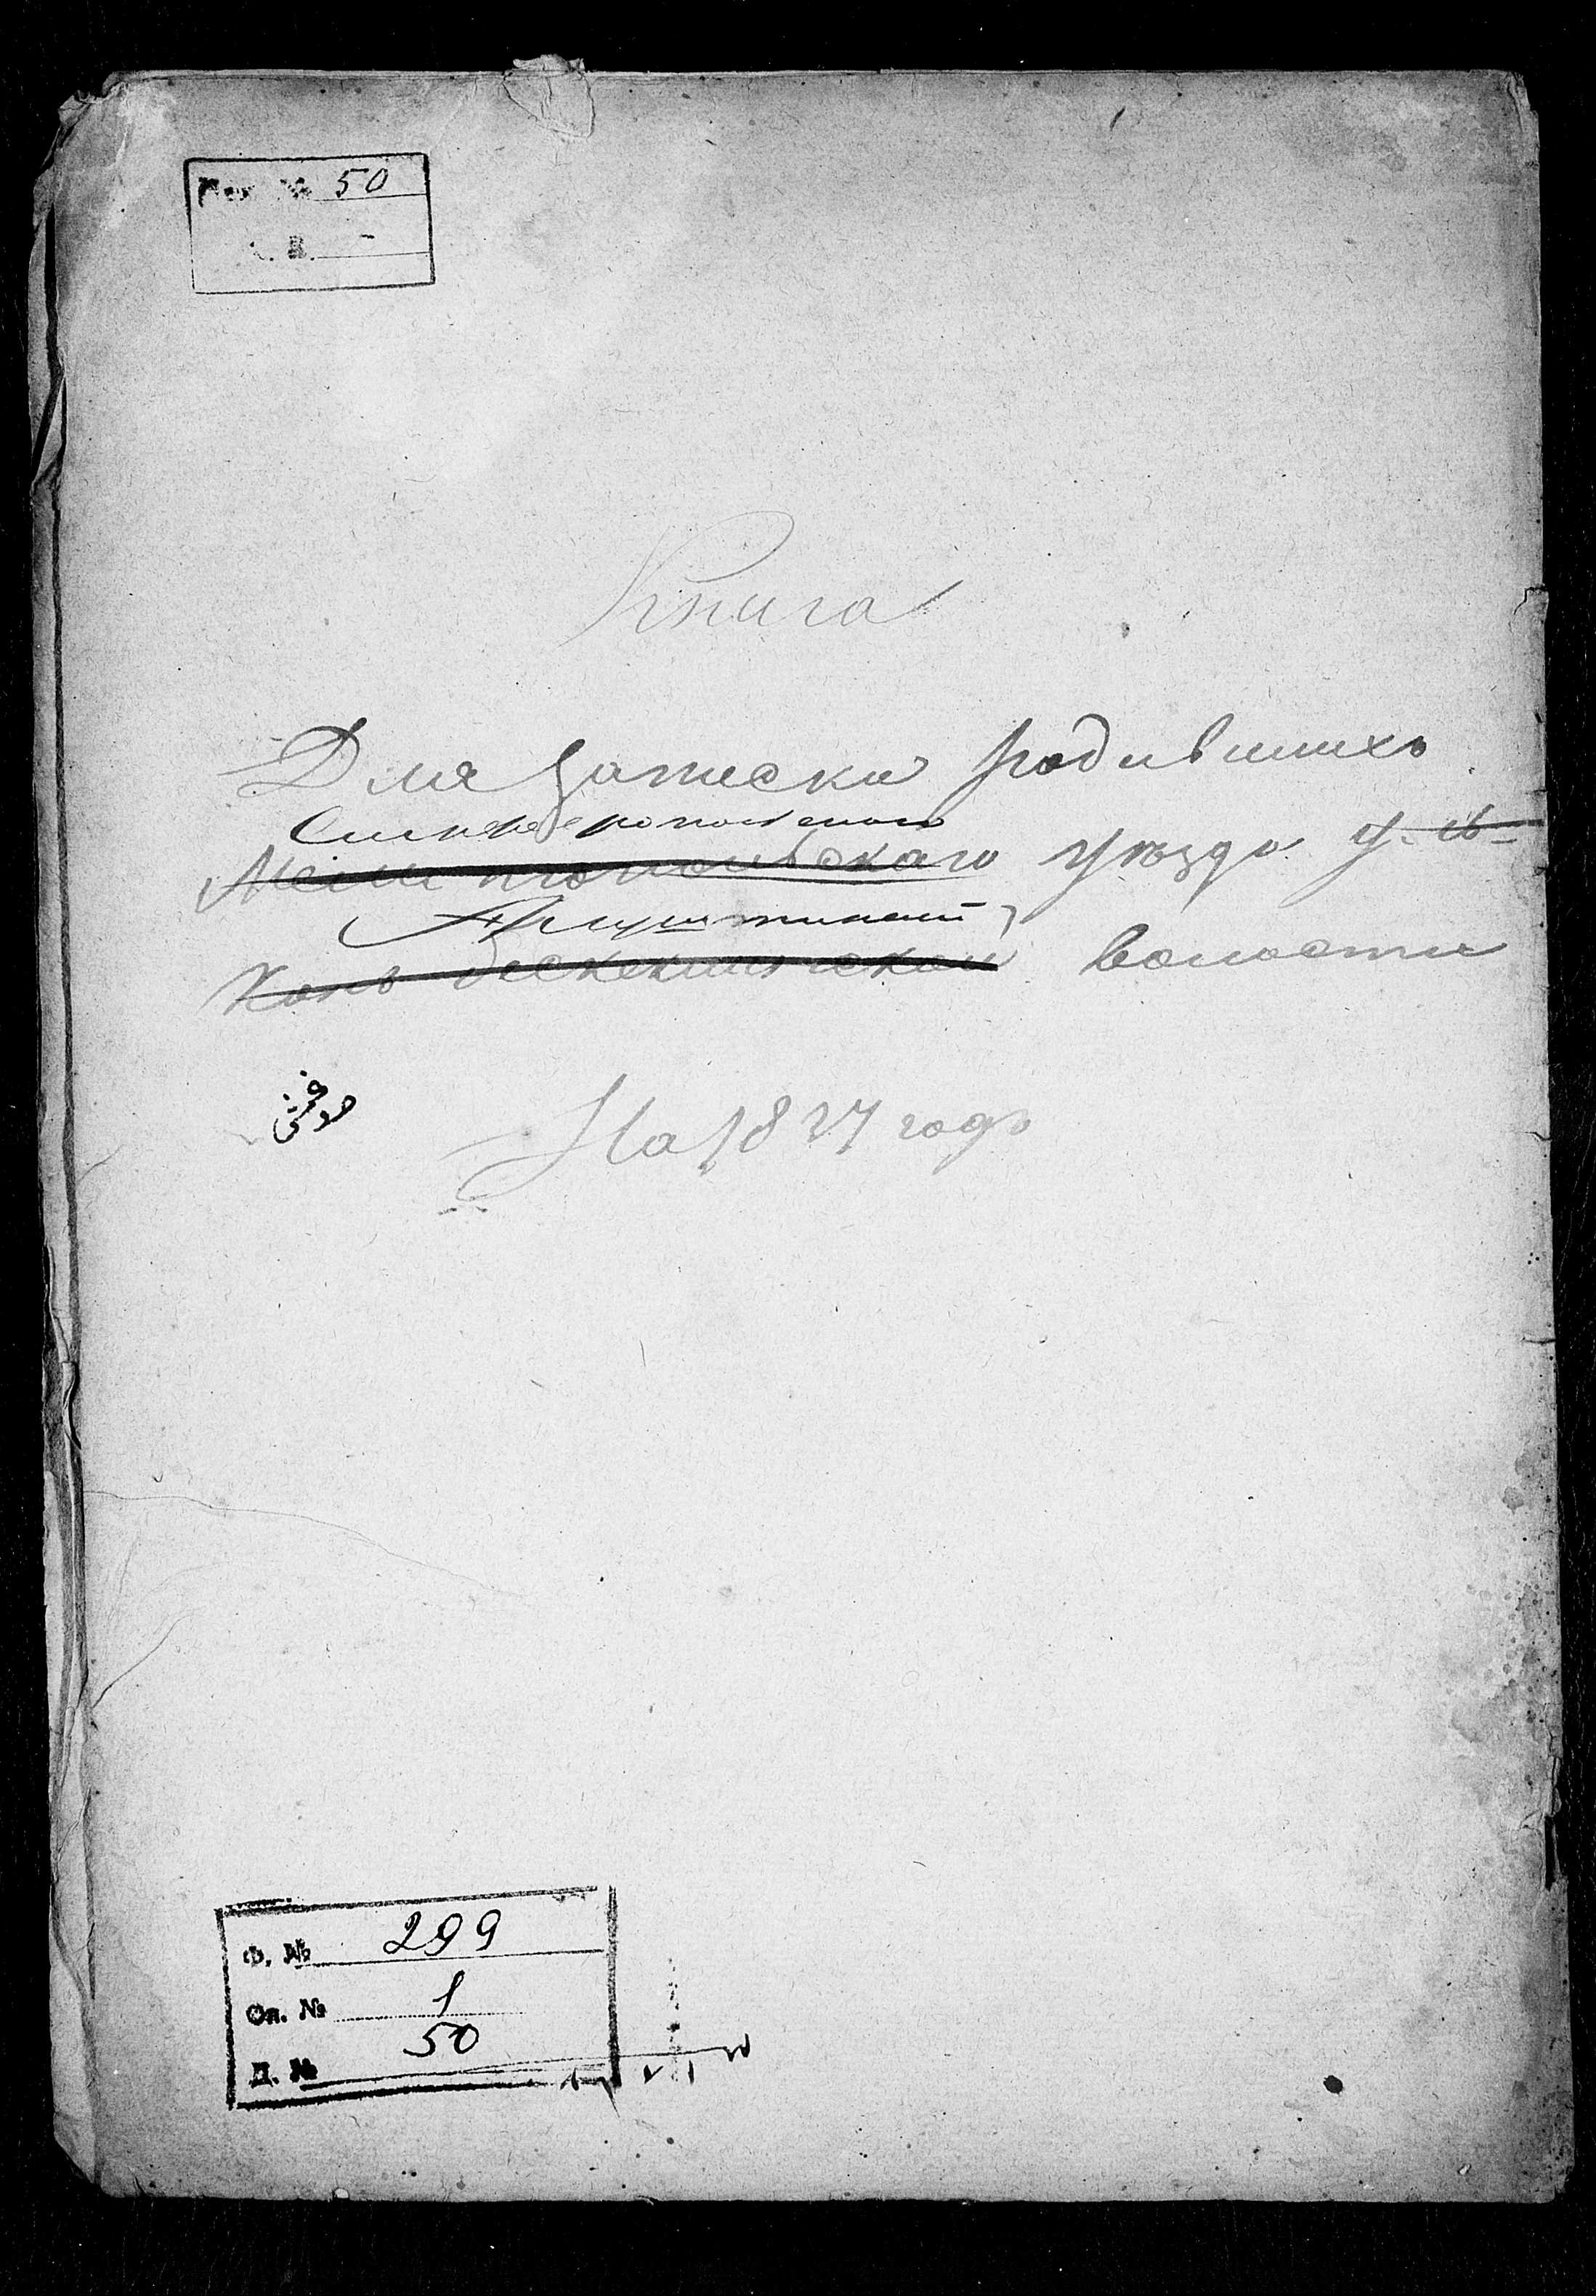 50
Книга
Для записки родившихъ
Симферопольскаго
Мелитопольскаго уѣзда
Алуштинской
волости
На 18 годъ
Ф. № 299
Оп. № 1
Д. № 50